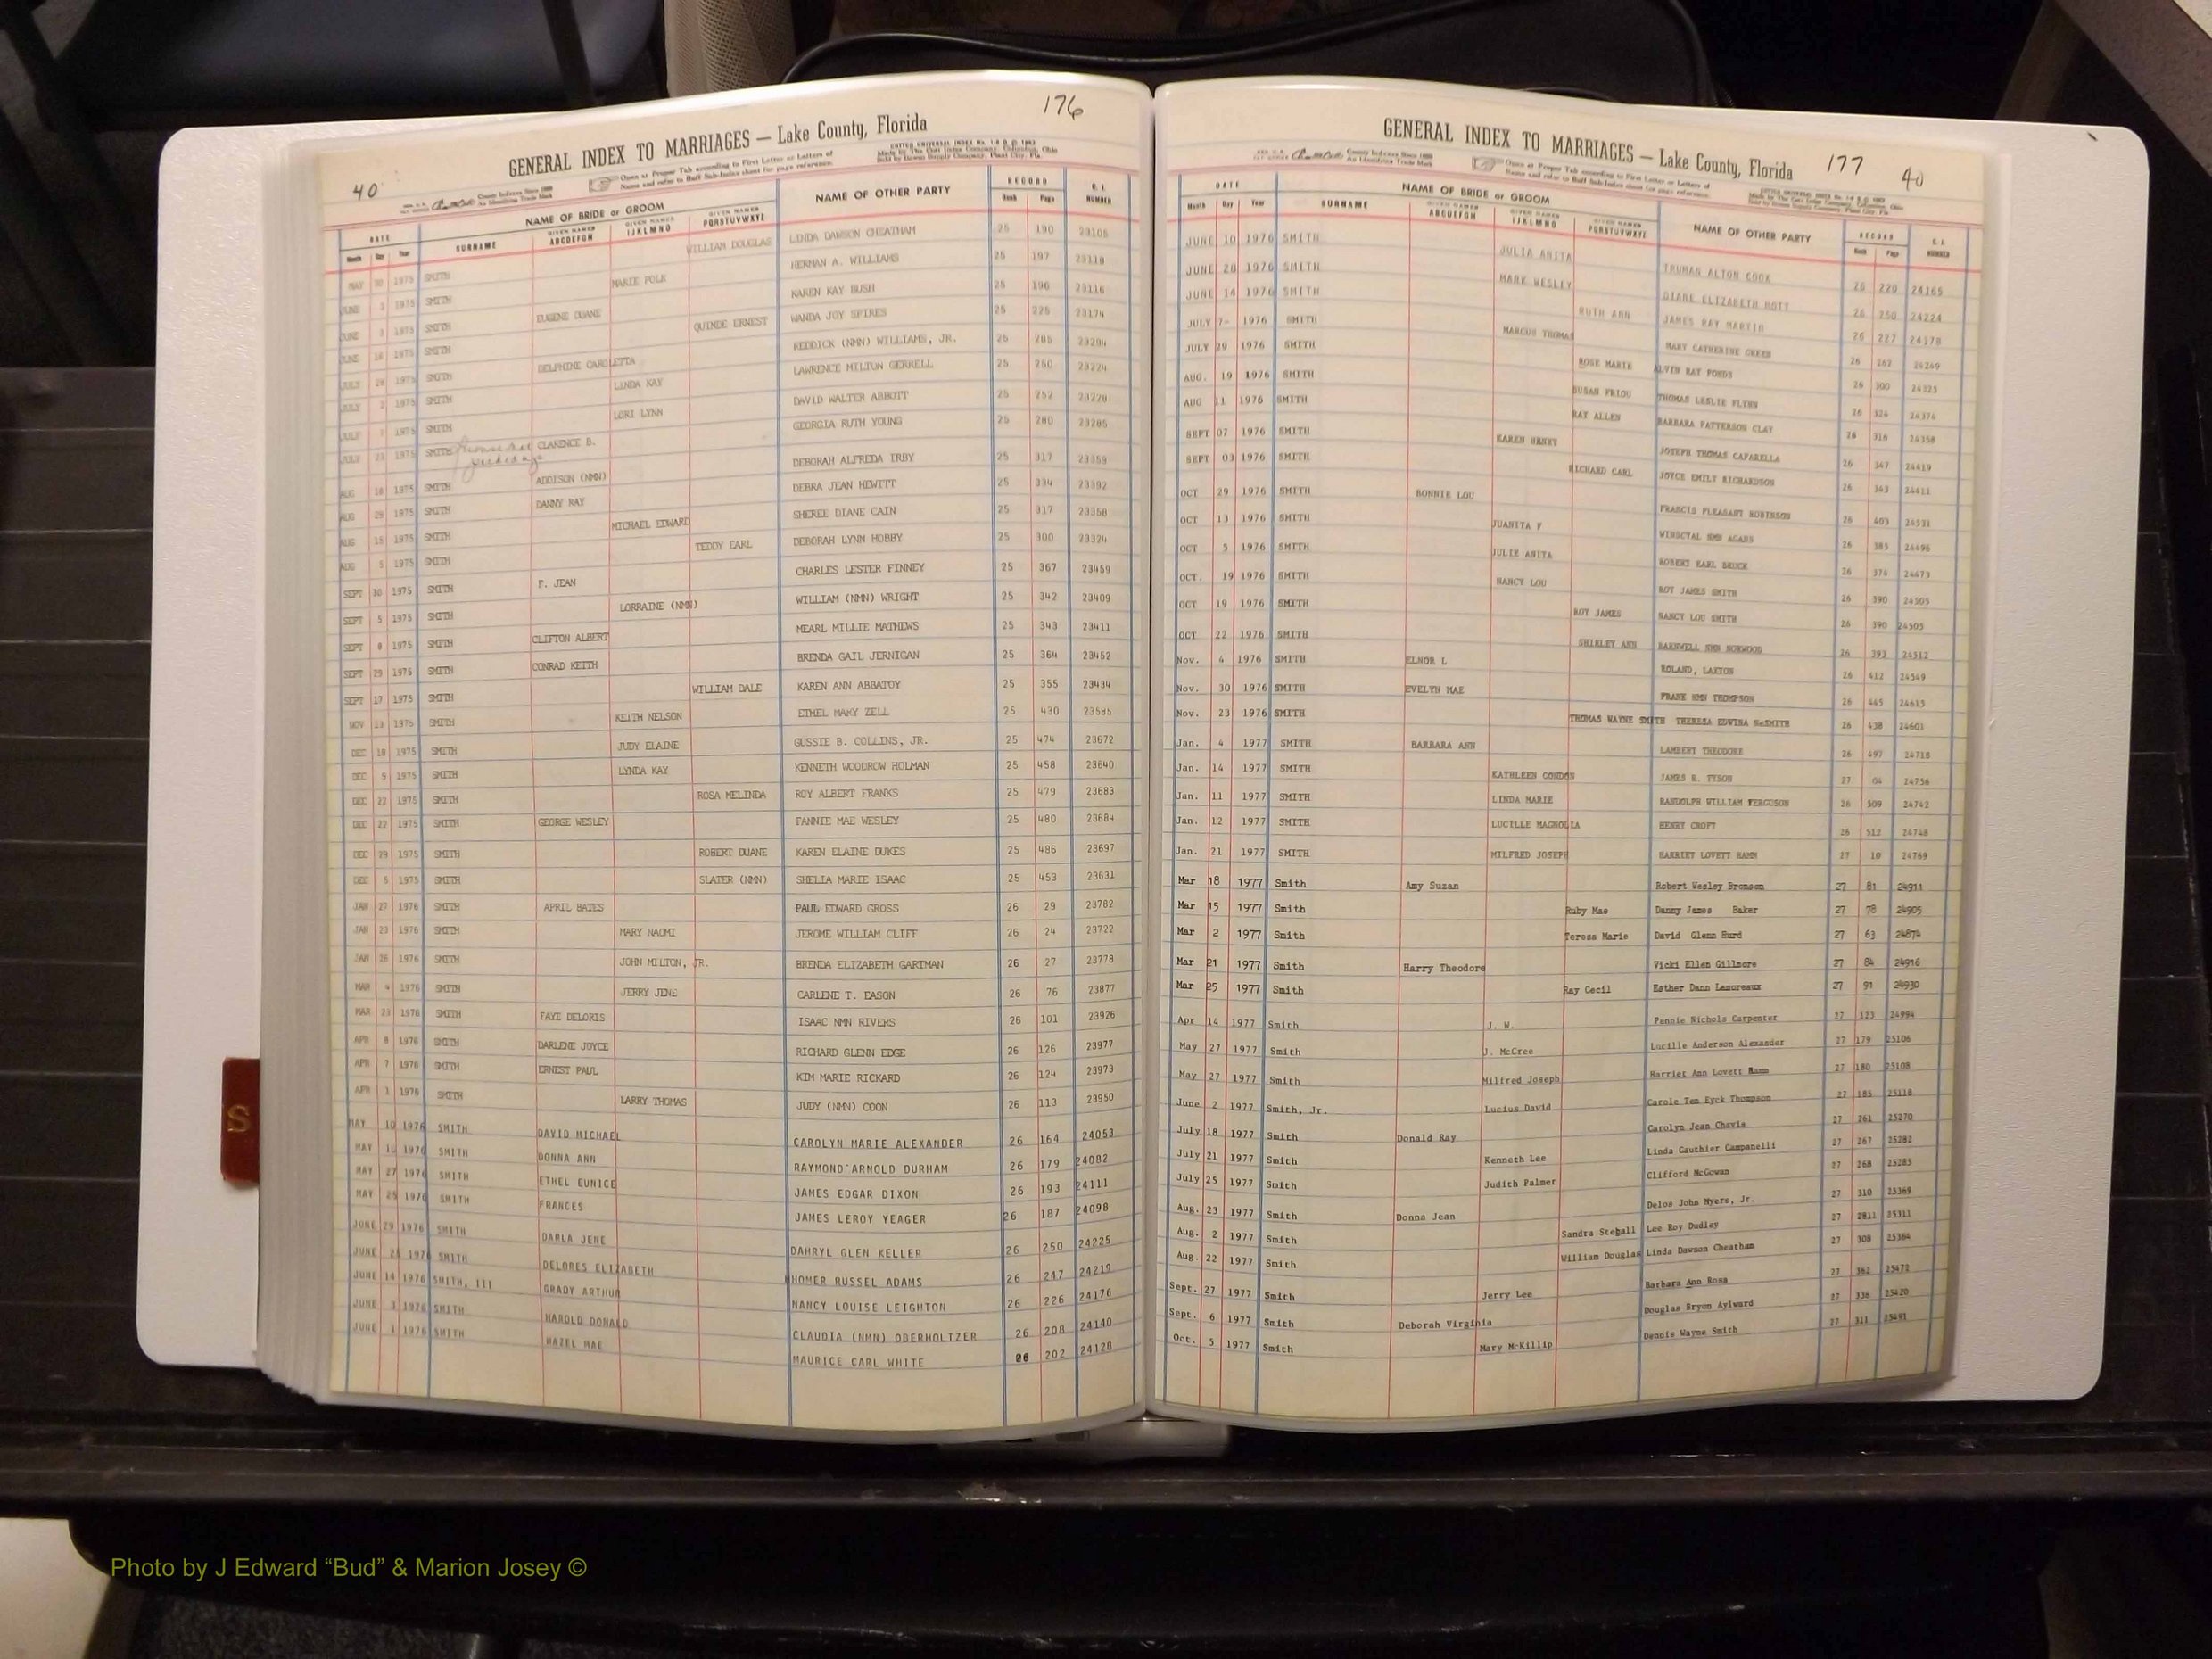 176
GENERAL INDEX TO MARRIAGES — Lake County, Florida
40
NAME OF BRIDE or GROOM NAME OF OTHER PARTY RECORD
DATE SURNAME GIVEN NAMES ABCDEFGH GIVEN NAMES IJKLMNO GIVEN NAMES PQRSTUVWXYZ Book Page NUMBER
Month Day Year
MAY 30 1975 SMITH WILLIAM DOUGLAS LINDA DAWSON CHEATHAM 25 190 23105
JUNE 3 1975 SMITH MARIE POLK HERMAN A. WILLIAMS 25 197 23118
JUNE 3 1975 SMITH EUGENE DUANE KAREN KAY BUSH 25 196 23116
JUNE 18 1975 SMITH QUINDE ERNEST WANDA JOY SPIRES 25 225 23174
JULY 29 1975 SMITH DELPHINE CAROLETTA REDDICK (NMN) WILLIAMS, JR. 25 285 23294
JULY 2 1975 SMITH LINDA KAY LAWRENCE MILTON GERRELL 25 250 23224
JULY 7 1975 SMITH LORI LYNN DAVID WALTER ABBOTT 25 252 23228
JULY 23 1975 SMITH CLARENCE B. GEORGIA RUTH YOUNG 25 280 23285
AUG 18 1975 SMITH ADDISON (NMN) DEBORAH ALFREDA IRBY 25 317 23359
AUG 29 1975 SMITH DANNY RAY DEBRA JEAN HEWITT 25 334 23392
AUG 15 1975 SMITH MICHAEL EDWARD SHEREE DIANE CAIN 25 317 23358
AUG 5 1975 SMITH TEDDY EARL DEBORAH LYNN HOBBY 25 300 23324
SEPT 30 1975 SMITH F. JEAN CHARLES LESTER FINNEY 25 367 23459
SEPT 5 1975 SMITH LORRAINE (NMN) WILLIAM (NMN) WRIGHT 25 342 23409
SEPT 8 1975 SMITH CLIFTON ALBERT MEARL MILLIE MATHEWS 25 343 23411
SEPT 29 1975 SMITH CONRAD KEITH BRENDA GAIL JERNIGAN 25 364 23452
SEPT 17 1975 SMITH WILLIAM DALE KAREN ANN ABBATOY 25 355 23434
NOV 13 1975 SMITH KEITH NELSON ETHEL MARY ZELL 25 430 23585
DEC 19 1975 SMITH JUDY ELAINE GUSSIE B. COLLINS, JR. 25 474 23672
DEC 9 1975 SMITH LYNDA KAY KENNETH WOODROW HOLMAN 25 458 23640
DEC 22 1975 SMITH ROSA MELINDA ROY ALBERT FRANKS 25 479 23683
DEC 22 1975 SMITH GEORGE WESLEY FANNIE MAE WESLEY 25 480 23684
DEC 29 1975 SMITH ROBERT DUANE KAREN ELAINE DUKES 25 486 23697
DEC 5 1975 SMITH SLATER (NMN) SHELIA MARIE ISAAC 25 453 23631
JAN 27 1976 SMITH APRIL BATES PAUL EDWARD GROSS 26 29 23782
JAN 23 1976 SMITH MARY NAOMI JEROME WILLIAM CLIFF 26 24 23722
JAN 26 1976 SMITH JOHN MILTON, JR. BRENDA ELIZABETH GARTMAN 26 27 23778
MAR 4 1976 SMITH JERRY JENE CARLENE T. EASON 26 76 23877
MAR 23 1976 SMITH FAYE DELORIS ISAAC NMN RIVERS 26 101 23926
APR 8 1976 SMITH DARLENE JOYCE RICHARD GLENN EDGE 26 126 23977
APR 7 1976 SMITH ERNEST PAUL KIM MARIE RICKARD 26 124 23973
APR 1 1976 SMITH LARRY THOMAS JUDY (NMN) COON 26 113 23950
MAY 10 1976 SMITH DAVID MICHAEL CAROLYN MARIE ALEXANDER 26 164 24053
MAY 1976 SMITH DONNA ANN RAYMOND ARNOLD DURHAM 26 179 24082
MAY 27 1976 SMITH ETHEL EUNICE JAMES EDGAR DIXON 26 193 24111
MAY 25 1976 SMITH FRANCES JAMES LEROY YEAGER 26 187 24098
JUNE 29 1976 SMITH DARLA JENE DAHRYL GLEN KELLER 26 250 24225
JUNE 1976 SMITH DELORES ELIZABETH HOMER RUSSEL ADAMS 26 247 24219
JUNE 14 1976 SMITH, III GRADY ARTHUR NANCY LOUISE LEIGHTON 26 226 24176
JUNE 3 1976 SMITH HAROLD DONALD CLAUDIA (NMN) OBERHOLTZER 26 208 24140
JUNE 1 1976 SMITH HAZEL MAE MAURICE CARL WHITE 26 202 24128
S
GENERAL INDEX TO MARRIAGES — Lake County, Florida 177 40
DATE NAME OF BRIDE or GROOM NAME OF OTHER PARTY RECORD
Month Day Year SURNAME GIVEN NAMES ABCDEFGH GIVEN NAMES IJKLMNO GIVEN NAMES PQRSTUVWXYZ Book Page NUMBER
JUNE 10 1976 SMITH JULIA ANITA TRUMAN ALTON COOK 26 220 24165
JUNE 28 1976 SMITH MARK WESLEY DIANE ELIZABETH MOTT 26 250 24224
JUNE 14 1976 SMITH RUTH ANN JAMES RAY MARTIN 26 227 24178
JULY 7- 1976 SMITH MARCUS THOMAS MARY CATHERINE GREEN 26 262 24249
JULY 29 1976 SMITH ROSE MARIE ALVIN RAY PONDS 26 300 24325
AUG. 19 1976 SMITH SUSAN FRIOU THOMAS LESLIE FLYNN 26 324 24374
AUG 11 1976 SMITH RAY ALLEN BARBARA PATTERSON CLAY 26 316 24358
SEPT 07 1976 SMITH KAREN HENRY JOSEPH THOMAS CAFARELLA 26 347 24419
SEPT 03 1976 SMITH RICHARD CARL JOYCE EMILY RICHARDSON 26 343 24411
OCT 29 1976 SMITH BONNIE LOU FRANCIS PLEASANT ROBINSON 26 403 24531
OCT 13 1976 SMITH JUANITA F 26 385 24496
OCT 5 1976 SMITH JULIE ANITA ROBERT EARL BRUCK 26 374 24473
OCT. 19 1976 SMITH NANCY LOU ROY JAMES SMITH 26 390 24505
OCT 19 1976 SMITH ROY JAMES NANCY LOU SMITH 26 390 24505
OCT 22 1976 SMITH SHIRLEY ANN BARNWELL NMN NORWOOD 26 393 24512
Nov. 4 1976 SMITH ELNOR L ROLAND, LAXTON 26 412 24549
Nov. 30 1976 SMITH EVELYN MAE FRANK NMN THOMPSON 26 445 24615
Nov. 23 1976 SMITH THOMAS WAYNE SMITH THERESA EDWINA McSMITH 26 438 24601
Jan. 4 1977 SMITH BARBARA ANN LAMBERT THEODORE 26 497 24718
Jan. 14 1977 SMITH KATHLEEN CONDON JAMES R. TYSON 27 04 24756
Jan. 11 1977 SMITH LINDA MARIE RANDOLPH WILLIAM FERGUSON 26 509 24742
Jan. 12 1977 SMITH LUCILLE MAGNOLIA HENRY CROFT 26 512 24748
Jan. 21 1977 SMITH MILFRED JOSEPH HARRIET LOVETT HAMM 27 10 24769
Mar 18 1977 Smith Amy Suzan Robert Wesley Bronson 27 81 24911
Mar 15 1977 Smith Ruby Mae Danny James Baker 27 78 24905
Mar 2 1977 Smith Teresa Marie David Glenn Hurd 27 63 24874
Mar 21 1977 Smith Harry Theodore Vicki Ellen Gillmore 27 84 24916
Mar 25 1977 Smith Ray Cecil Esther Dann Lamoreaux 27 91 24930
Apr 14 1977 Smith J. W. Pennie Nichols Carpenter 27 123 24994
May 27 1977 Smith J. McCree Lucille Anderson Alexander 27 179 25106
May 27 1977 Smith Milfred Joseph Harriet Ann Lovett Hamm 27 180 25108
June 2 1977 Smith, Jr. Lucius David Carole Ten Eyck Thompson 27 185 25118
July 18 1977 Smith Donald Ray Carolyn Jean Chavis 27 261 25270
July 21 1977 Smith Kenneth Lee Linda Gauthier Campanelli 27 267 25282
July 25 1977 Smith Judith Palmer Clifford McGowan 27 268 25285
Aug. 23 1977 Smith Donna Jean Delos John Myers, Jr. 27 310 25369
Aug. 2 1977 Smith Sandra Steball Lee Roy Dudley 27 2811 25311
Aug. 22 1977 Smith William Douglas Linda Dawson Cheatham 27 308 25364
Sept. 27 1977 Smith Jerry Lee Barbara Ann Rosa 27 362 25472
Sept. 6 1977 Smith Deborah Virginia Douglas Bryon Aylward 27 336 25420
Oct. 5 1977 Smith Mary McKillip Dennis Wayne Smith 27 311 25491
Photo by J Edward “Bud” & Marion Josey ©